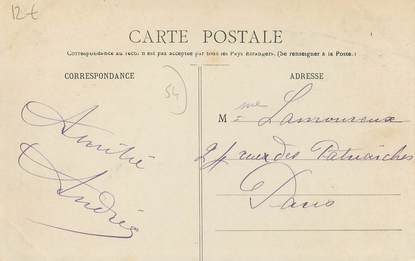 12 €
CARTE POSTALE
Correspondance au recto n'est pas acceptée par tous les Pays étrangers. (Se renseigner à la Poste.)
CORRESPONDANCE
54
Amitié
Andrée
ADRESSE
Mme Lamoureux
rue des Patriarches
Paris